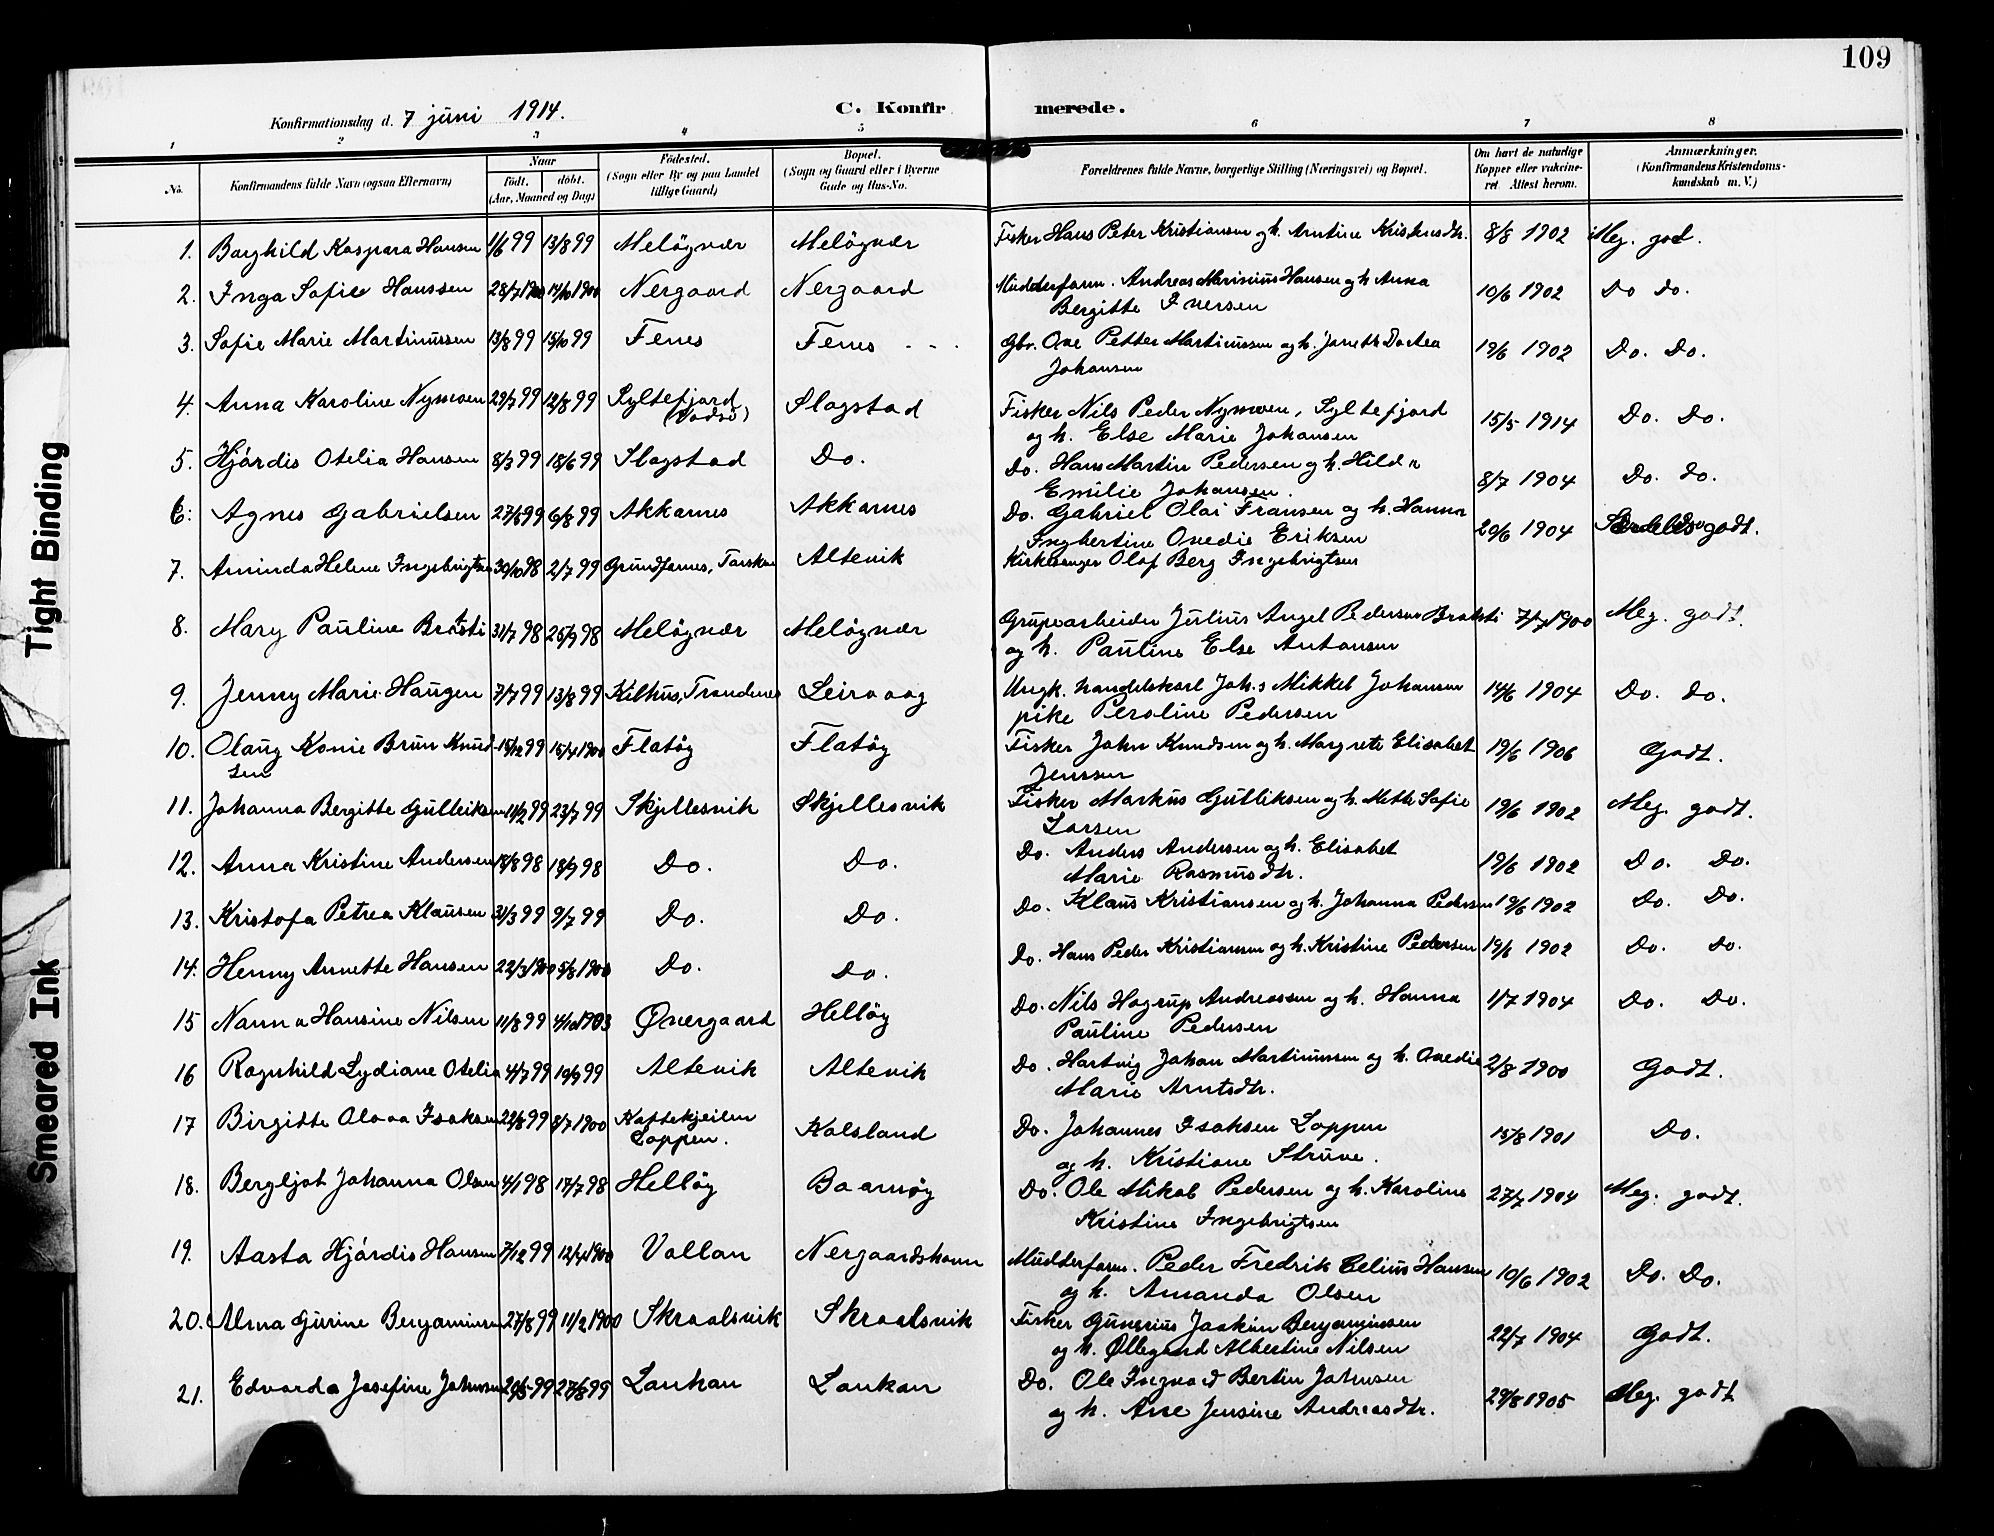 109
Konfirmationsdag d. 7 juni 1914.
C. Konfirmerede.
1 2 3 4 5 6 7 8
No.
Konfirmandens fulde Navn (ogsaa Efternavn)
Naar
Födt. döbt.
(Aar, Maaned og Dag)
Födested.
(Sogn eller By og paa Landet
tillige Gaard)
Bopæl.
(Sogn og Gaard eller i Byerne
Gade og Hus-No.
Forældrenes fulde Navne, borgerlige Stilling (Næringsvei) og Bopæl.
Om havt de naturlige
Kopper eller vakcine-
ret Attest herom.
Anmærkninger.
(Konfirmandens Kristendoms-
kundskab m. V.)
1. Borghild Kaspara Hansen 1/6 99 13/8 99 Meløyvær Meløyvær Fisker Hans Peter Kristiansen og h. Arntine Kristensdtr. 8/8 1902 Meg. god.
2. Inga Sofie Hanssen 28/7 1900 14/10 1900 Nergaard Nergaard Mudderform. Andreas Marinius Hansen og h Anna
Bergitte Iversen 10/6 1902 Do Do.
3. Sofie Marie Martinussen 13/8 99 15/10 99 Fenes Fenes Gbr. Ove Petter Martinussen og h. Janeth Dortea
Johansen 19/6 1902 Do. Do.
4. Anna Karoline Nymoen 29/7 99 12/8 99 Syltefjord
(Vadsö) Slagstad Fisker Nils Peder Nymoen, Syltefjord
og h. Else Marie Johansen 15/5 1914 Do. Do.
5. Hjördis Otelia Hansen 8/3 99 18/6 99 Slagstad Do. Do. Hans Martin Pedersen og h. Hilda
Emilie Johansen. 8/7 1904 Do. Do.
6. Agnes Gabrielsen 27/6 99 6/8 99 Akkarnes Akkarnes Do. Gabriel Olai Fransen og h. Hanna
Ingbertine Ovedie Eriksen 20/6 1904 godt.
7. Aminda Helene Ingebrigtsen 30/10 98 2/7 99 Grundfarnes, Torsken Altevik Kirkesanger Olaf Berg Ingebrigtsen
8. Mary Pauline Bratsti 31/7 98 25/9 98 Meløyvær Meløyvær Grubearbeider Julius Angel Pedersen Bratsti
og h. Pauline Else Antonsen 7/7 1900 Meg. godt.
9. Jenny Marie Haugen 7/7 99 13/8 99 Kilhus, Trondenes Leirvaag Ungk. handelskarl Johs Mikkel Johansen
pike Peroline Pedersen 14/6 1904 Do. Do.
10. Olaug Konie Brun Knud-
sen 15/12 99 15/4 1900 Flatøy Flatøy Fisker John Knudsen og h. Margrete Elisabet
Jenssen 19/6 1906 Godt.
11. Johanna Bergitte Gulleiksen 11/2 99 23/7 99 Skjellesvik Skjellesvik Fisker Markus Gulliksen og h. Mette Sofie
Larsen 19/6 1902 Meg. godt.
12. Anna Kristine Andersen 18/8 98 18/9 98 Do. Do. Do. Anders Andersen og h. Elisabet
Marie Rasmusdtr. 19/6 1902 Do. Do.
13. Kristofa Petrea Klausen 31/3 99 9/7 99 Do. Do. Do. Klaus Kristiansen og h. Johanna Pedersen 19/6 1902 Do. Do.
14. Henny Annette Hansen 22/3 1900 5/8 1900 Do. Do. Do. Hans Peder Kristiansen og h. Kristine Pedersen 19/6 1902 Do. Do.
15 Nanna Hansine Nilsen 11/8 99 4/10 1903 Øvergaard Helløy Do. Nils Hagrup Andreassen og h. Hanna
Pauline Pedersen 1/7 1904 Do. Do.
16 Ragnhild Lydiane Otelia 4/7 99 10/9 99 Altevik Altevik Do. Hartvig Johan Martinussen og h. Ovedie
Marie Arntsdtr. 2/8 1900 Godt.
17 Birgitte Olava Isaksen 22/8 99 8/7 1900
Loppen. Kalsland Do. Johannes Isaksen Loppen
og h. Kristiane Struve. 15/8 1901 Do.
18. Bergljot Johanna Olsen 4/1 98 17/7 98 Helløy Baamøy Do. Ole Mikal Pedersen og h. Karoline
Kristine Ingebrigtsen 27/7 1904 Meg. godt.
19. Aasta Hjördis Hansen 7/12 99 12/4 1900 Vollan Nergaardshavn Mudderform. Peder Fredrik Celius Hansen
og h. Amanda Olsen 10/6 1902 Do. Do.
20. Alma Gurine Benjaminsen 27/8 99 11/2 1900 Skroalsvik Skroalsvik Fisker Gunerius Joakim Benjaminsen
og h. Øllegard Albertine Nilsen 22/7 1904 Godt.
21. Edvarda Josefine Johnsen 20/5 99 27/8 99 Lankan Lankan Do. Ole Ingvard Bertin Johnsen
og h. Ane Jensine Andreasdtr. 29/8 1905 Meg. godt
Tight Binding
Smeared Ink